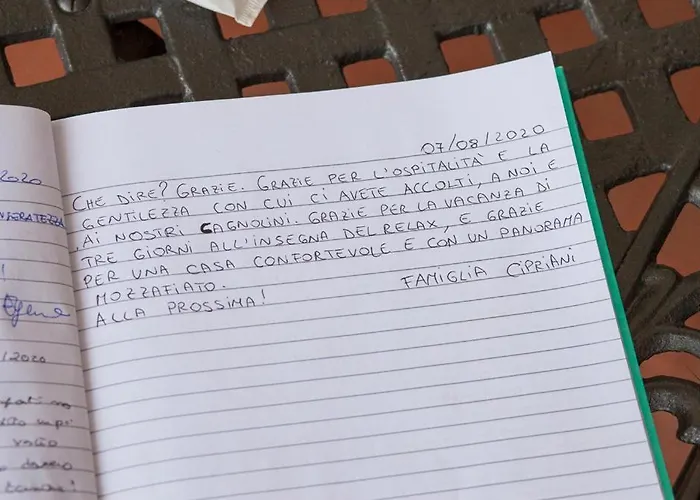 2020
!
/2020
07/08/2020
CHE DIRE? GRAZIE. GRAZIE PER L'OSPITALITÀ E LA
GENTILEZZA CON CUI CI AVETE ACCOLTI, A NOI E
AI NOSTRI CAGNOLINI. GRAZIE PER LA VACANZA DI
TRE GIORNI ALL'INSEGNA DEL RELAX, E GRAZIE
PER UNA CASA CONFORTEVOLE E CON UN PANORAMA
MOZZAFIATO.
ALLA PROSSIMA!
FAMIGLIA CIPRIANI